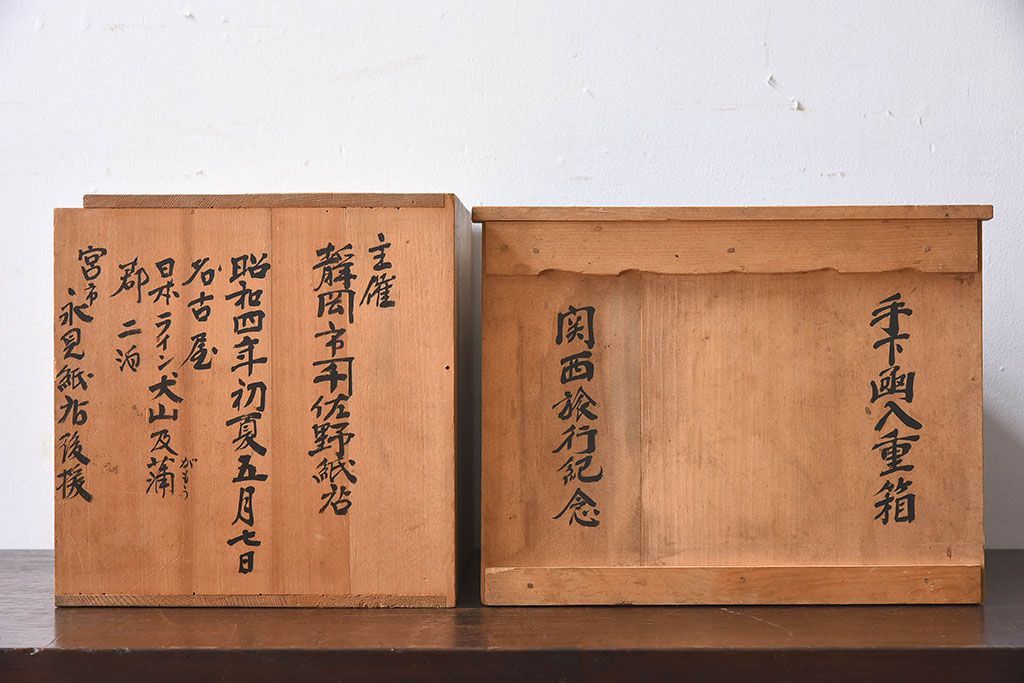 手下函入重箱
関西旅行紀念
主催
靜岡市佐野紙店
昭和四年初夏五月七日
名古屋
日本ライン犬山及蒲
がもう
郡二泊
宮市永見紙店後援